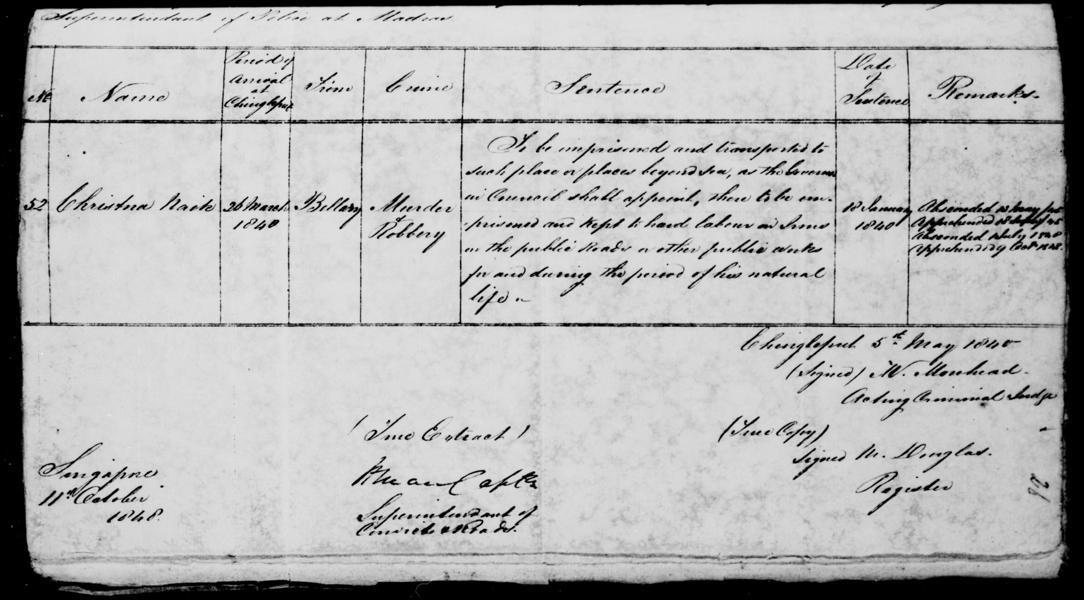 Superintendant of Police at Madras
No
Name
Period of
Arrival
at
Chingleput
From
Crime
Sentence
Date
of
Sentence
Remarks
52
Christna Naik
26 March
1840
Bellary
Murder
&
Robbery
To be imprisoned and transported to
such place or places beyond sea, as the Governor
in Council shall appoint, there to be im-
prisoned and kept to hard labour in Irons
on the public Roads or other public works
for and during the period of his natural
life
18 January
1840
Absconded
Apprehended
Absconded July 1848
Apprehended 9 Octr 1848.
Chingleput 5th May 1840
(Signed) W. Morehead.
Acting Criminal Judge
(True Extract)
(True Copy)
Signed M. Douglas.
Register
Singapore
11th October
1848.
Captn
Superintendant of
Convicts & Roads.